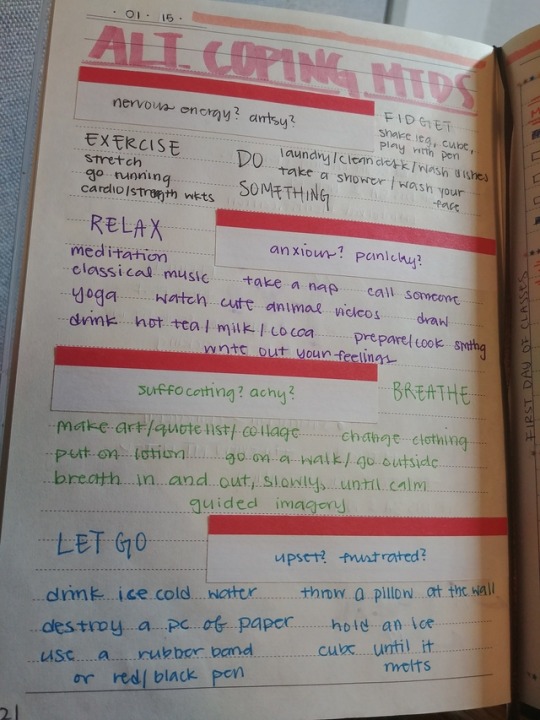 · 01 · 15 ·
ALT. COPING MTDS
nervous energy? antsy?
FIDGET
shake leg, cube,
play with pen
EXERCISE
stretch
go running
cardio/strength wkts
DO SOMETHING
laundry/clean desk/wash dishes
take a shower/wash your
face
RELAX
anxious? panicky?
meditation
classical music take a nap call someone
yoga watch cute animal videos draw
drink hot tea/milk/cocoa prepare/cook smthg
write out your feelings
suffocating? achy?
BREATHE
make art/quote list/collage change clothing
put on lotion go on a walk/go outside
breath in and out, slowly, until calm
guided imagery
LET GO
upset? frustrated?
drink ice cold water throw a pillow at the wall
destroy a pc of paper hold an ice
use a rubber band cube until it
or red/black pen melts
21
FIRST DAY OF CLASSES